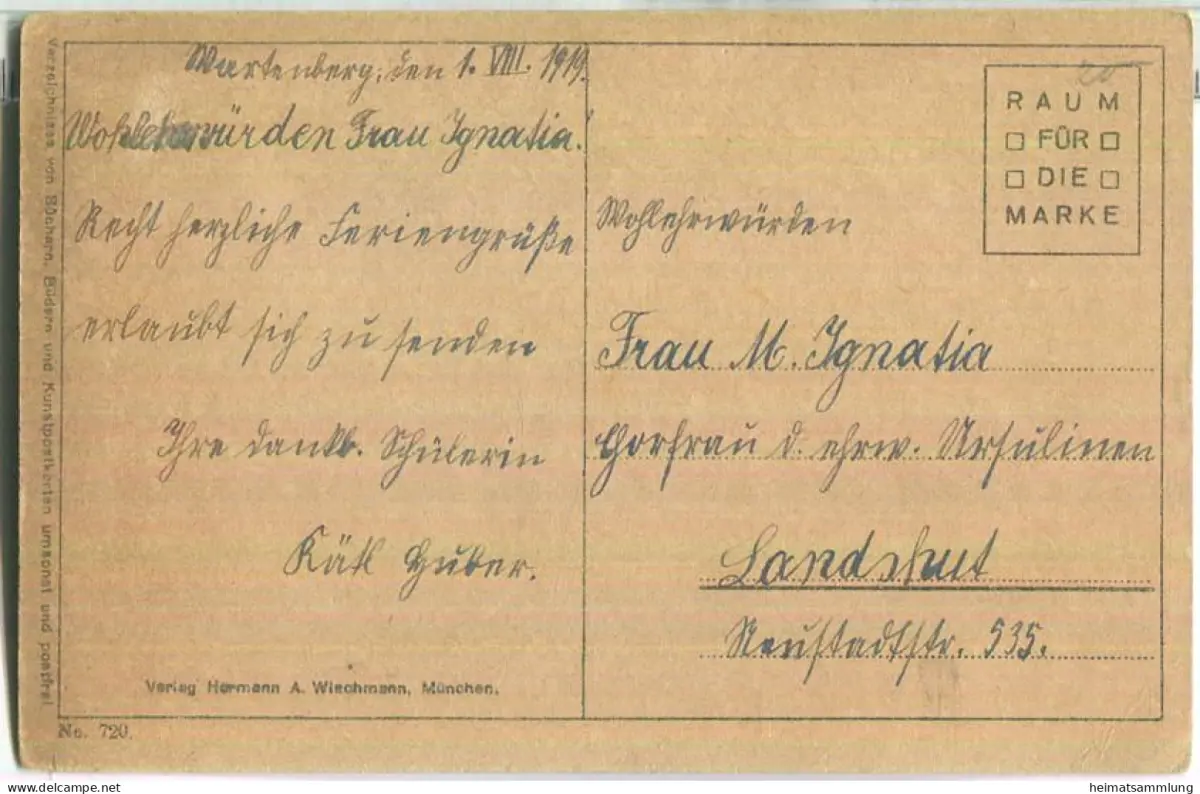 Wartenberg, den 1. VIII. 1919.
Wohlehrwürden Frau Ignatia!
Recht herzliche Feriengrüße
erlaubt sich zu senden
Ihre dankb. Schülerin
Kätl Huber.
Verlag Hermann A. Wiechmann, München.
No. 720.
Verzeichnisse von Büchern, Bildern und Kunstpostkarten umsonst und postfrei
20
RAUM
FÜR
DIE
MARKE
Wohlehrwürden
Frau M. Ignatia
Chorfrau d. ehrw. Ursulinen
Landshut
Neustadtstr. 535.
www.delcampe.net
heimatsammlung